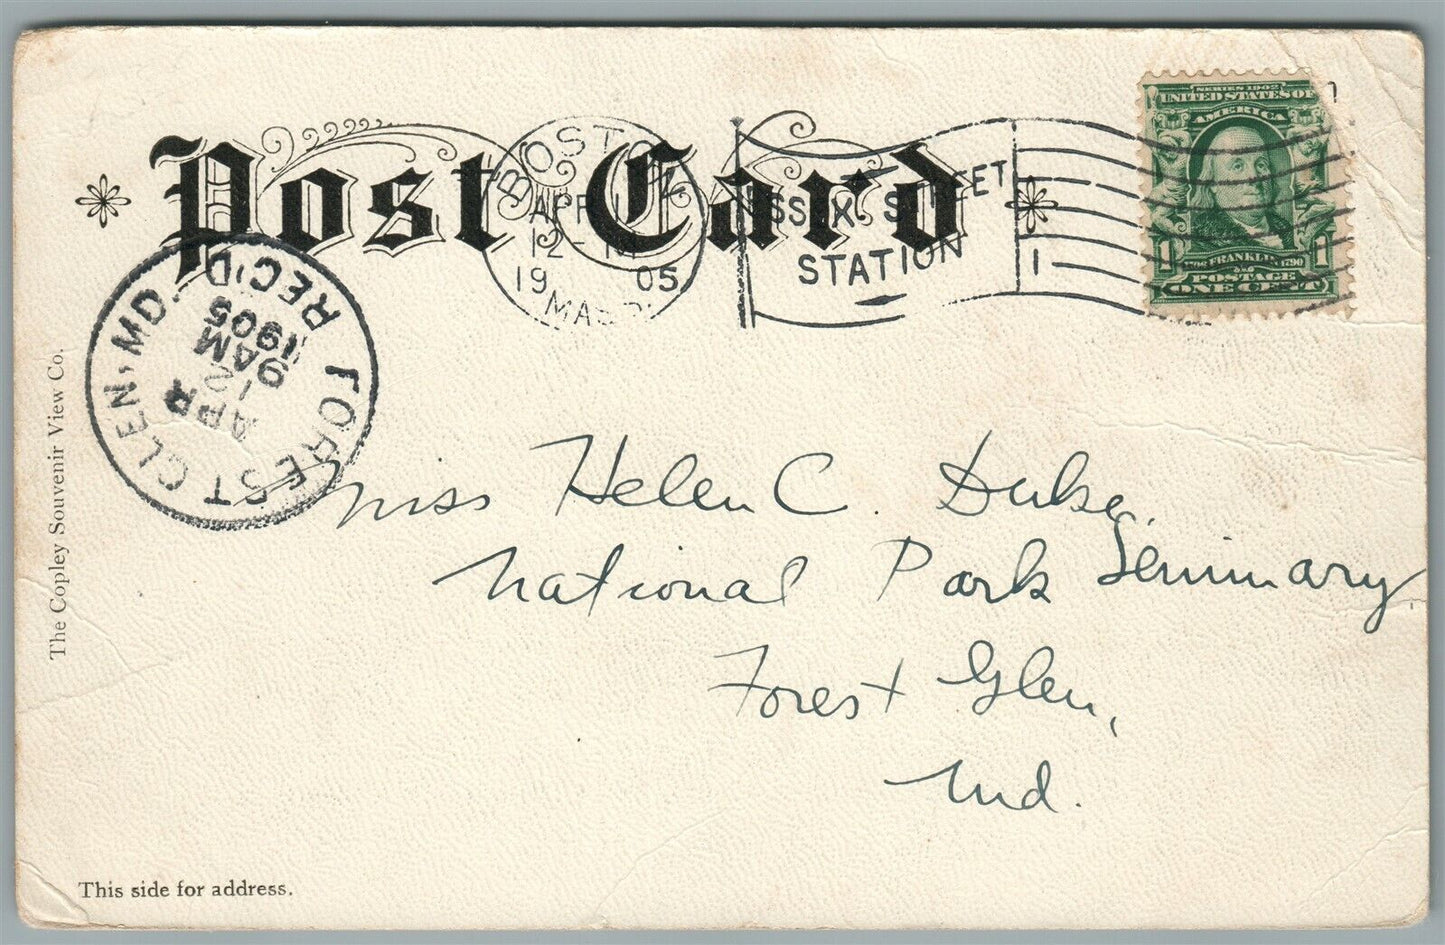 Post Card
BOSTON
APR
12 - M
19 05
MASS.
ESSEX STREET
STATION
1
SERIES 1902
UNITED STATES OF
AMERICA
1 1
FRANKLIN 1790
POSTAGE
ONE CENT
FOREST GLEN, MD.
REC'D
APR
12
9 AM
1905
The Copley Souvenir View Co.
Miss Helen C. Duke,
National Park Seminary,
Forest Glen,
Md.
This side for address.